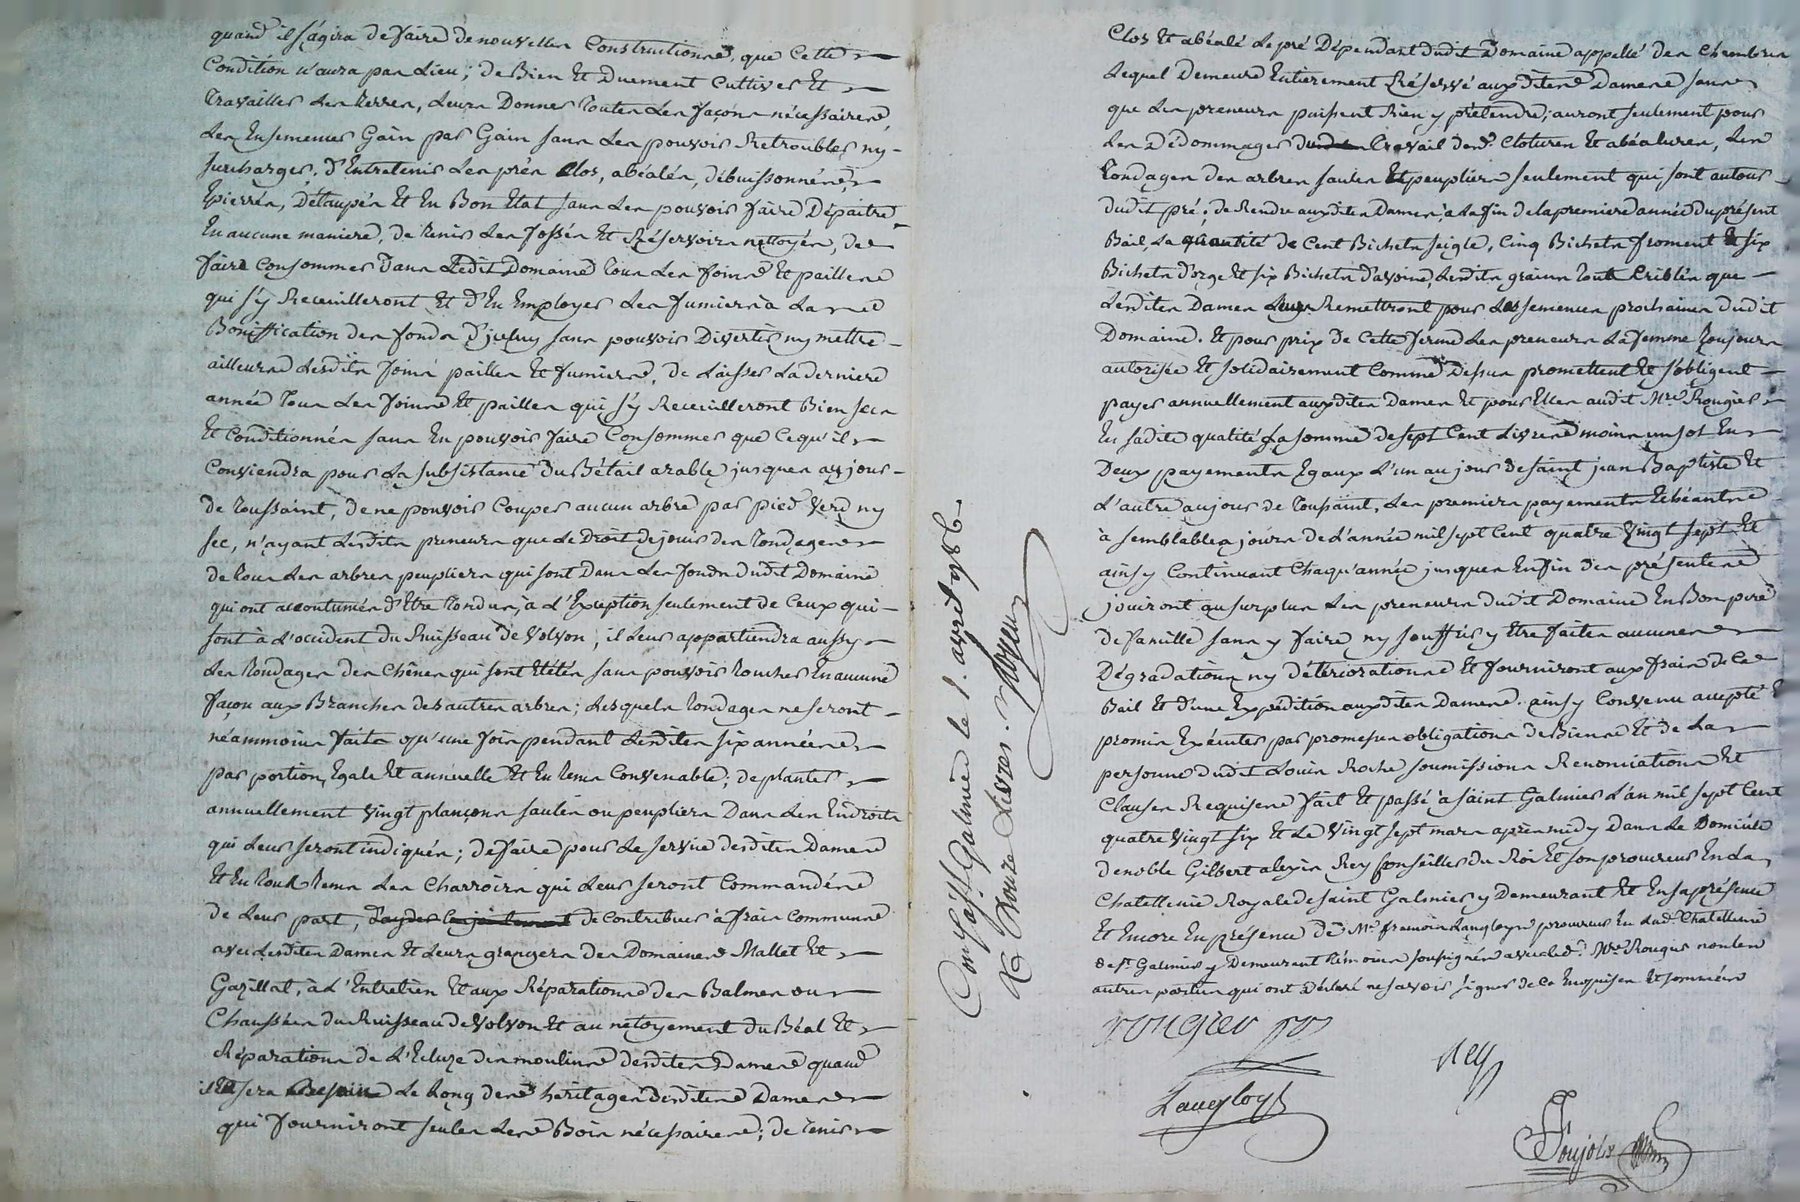 quand il s'agira de faire de nouvelles Constructions, que Cette
Condition n'aura pas Lieu; de Bien Et Duement Cultiver Et
Travailler Les Terres, Leurs Donner Toutes Les façons nécessaires,
Les Ensemencer Gain par Gain sans Les pouvoir Retroubler ny
surcharger, d'Entretenir Les prés Clos, abéalés, débuissonnés,
Epierrés, Détaupés Et En Bon Etat sans Les pouvoir faire Dépaitre
En aucune maniere, de Tenir Les fossés Et Réservoirs nettoyés, de
faire Consommer Dans Ledit Domaine Tous Les foins Et pailles
qui s'y Receuilleront Et d'En Employer Les fumiers à La
Boniffication des fonds d'jceluy sans pouvoir Divertir ny mettre
ailleurs Lesdits foins pailles Et fumiers, de Laisser La derniere
année Tous Les foins Et pailles qui s'y Receuilleront Bien secs
Et Conditionnés sans En pouvoir faire Consommer que Cequ'il
Conviendra pour La subsistance du Bétail arable jusques au jour
de Toussaint, de ne pouvoir Couper aucun arbre par pied Verd ny
sec, n'ayant Lesdits preneurs que Le Droit de jouir des Tondages
de Tous Les arbres peupliers qui sont Dans Les fonds dudit Domaine
qui ont accoutumés d'Etre Tondus, à L'Exception seulement de Ceux qui
sont à L'occident du Ruisseau de Volvon; il Leur appartiendra aussy
Les Tondages des Chênes qui sont Etétés sans pouvoir Toucher En aucune
façon aux Branches des autres arbres; Lesquels Tondages ne seront
néammoins faits qu'une fois pendant Lesdites six années
par portion Egale Et annuelle Et En Tems Convenable; de planter
annuellement Vingt plançons saules ou peupliers Dans Les Endroits
qui Leur seront indiqués; de faire pour Le service desdites Dames
Et En Tout Tems Les Charroirs qui Leur seront Commandés
de Leur part, de Contribuer à frais Communs
avec Lesdites Dames Et Leurs grangers des Domaines Mallet Et
Gazillat, à L'Entretien Et aux Réparations des Balmes ou
Chaussées du Ruisseau de Volvon Et au netoyement du Béal Et
Réparations de L'Ecluze des moulins desdites Dames quand
il En sera Besoin Le Long des héritages desdites Dames
qui fourniront seules Les Bois nécessaires; de Tenir
Con. st. Galmier le 1. avril 1786
Et Livres.
Clos Et abéalé Le pré Dépendant dudit Domaine appellé des Chembres
Lequel Demeure Entierement Réservé auxdites Dames sans
que Les preneurs puissent Rien y prétendre; auront seulement pour
Les Dédommager du Travail desd. Clotures Et abéalures, Les
Tondages des arbres saules Et peupliers seulement qui sont autour
dudit pré; de Rendre auxdites Dames, à La fin de la premiere année du présent
Bail, La quantité de Cent Bichets seigle, Cinq Bichets froment Et six
Bichets d'orge Et six Bichets d'avoine, Lesdits grains Tout Criblés que
Lesdites Dames Leur Remettront pour Les semences prochaines dudit
Domaine. Et pour prix de Cette ferme Les preneurs La femme Toujours
autorisée Et solidairement Comme Dessus promettent Et s'obligent
payer annuellement auxdites Dames Et pour Elles audit Mre. Rougier
En sadite qualité La somme de sept Cent Livres moins un sol En
Deux payements Egaux L'un au jour de saint jean Baptiste Et
L'autre au jour de Toussaint, Les premiers payements Echéants
à semblables jours de L'année mil sept Cent quatre Vingt sept Et
ainsy Continuant Chaqu'année jusques En fin des présentes
jouiront au surplus Les preneurs dudit Domaine En Bon pere
de famille sans y faire ny souffrir y Etre faites aucunes
Dégradations ny détériorations Et fourniront aux frais de Ce
Bail Et d'une Expédition auxdites Dames. ainsy Convenu accepté
promis Exécuter par promesses obligations de Biens Et de La
personne dudit Louis Roche soumissions Renonciations Et
Clauses Requises fait Et passé à saint Galmier L'an mil sept Cent
quatre Vingt six Et Le Vingt sept mars après midy Dans Le Domicile
de noble Gilbert alexis Rey Conseiller du Roi Et son procureur En La
Chatellenie Royale de saint Galmier y Demeurant Et En sa présence
Et Encore En présence de Me. françois Langloys procureur En Lad. Chatellenie
de st. Galmier y Demeurant Témoins soussignés avec led. Mre. Rougier non les
autres parties qui ont Déclaré ne savoir signer de ce Enquises Et sommées
rougier
Rey
Langloys
Poujols